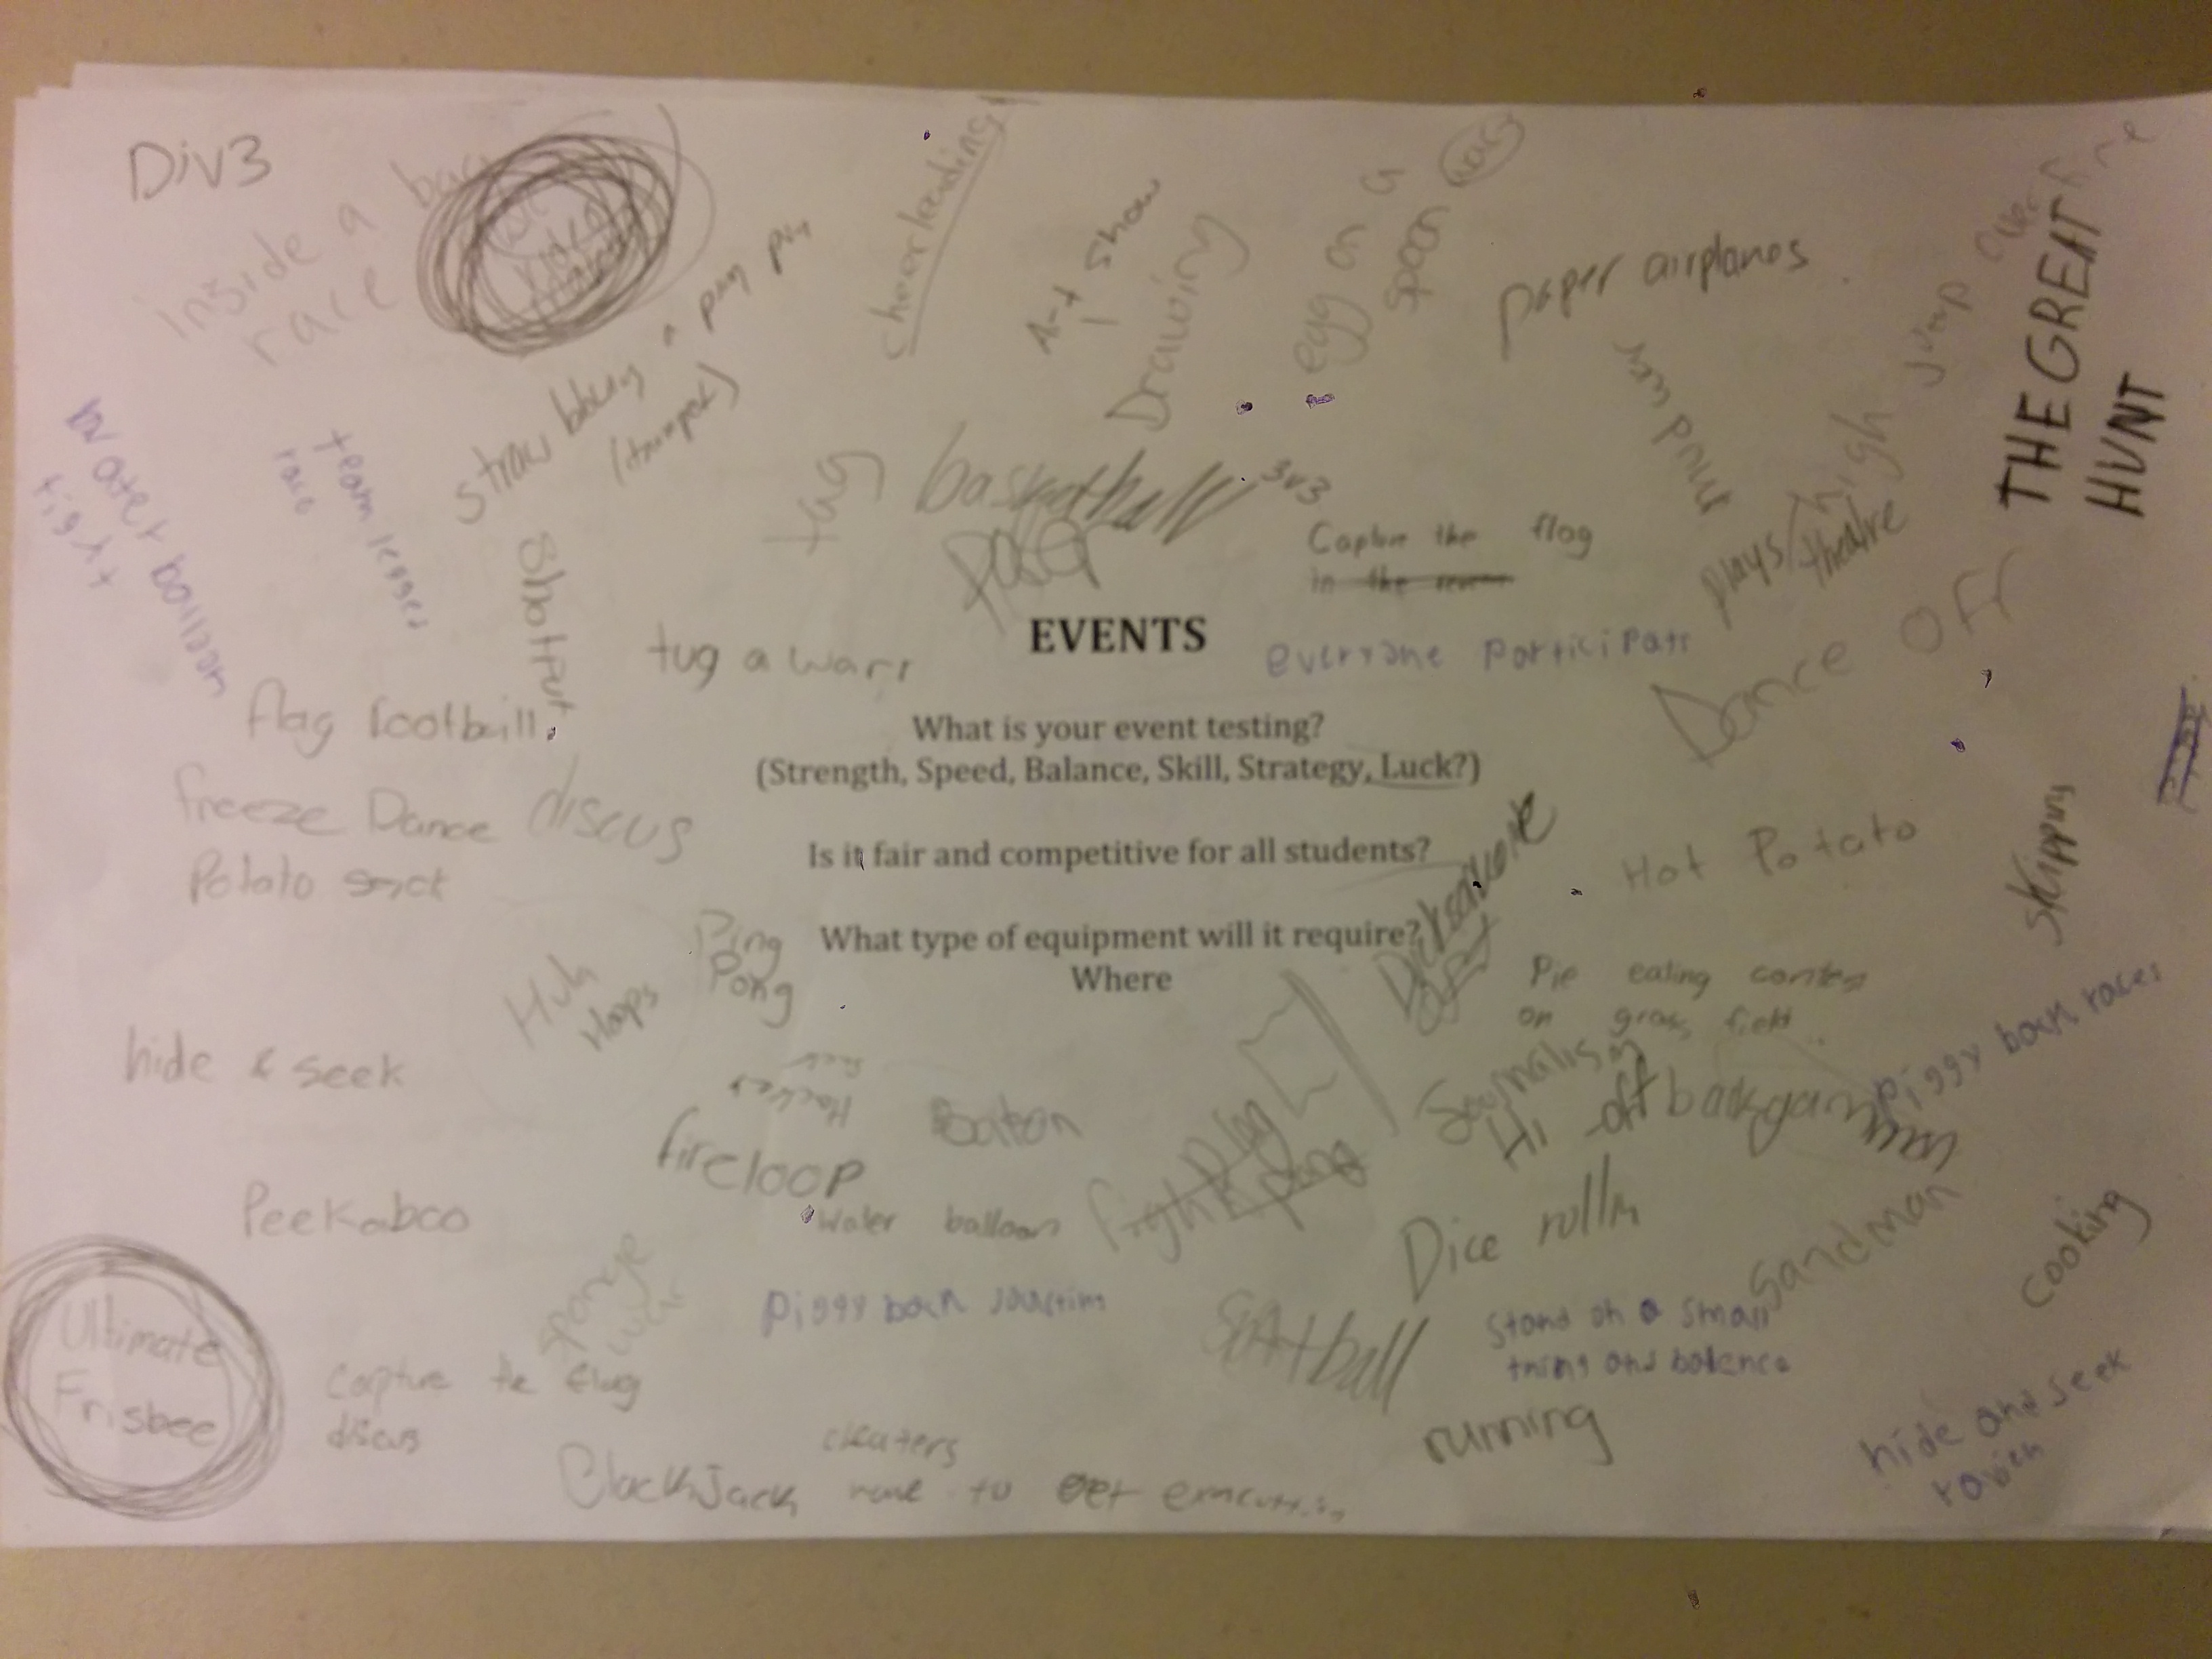 Div3
inside a bag
race
straw blowing a ping
cheerleading
Art show
Drawing
egg on a
spoon
race
paper airplanes
mud
high jump over fire
THE GREAT
HUNT
water balloon
fight
team legges
race
shotput
tag
basketball 3v3
Capture the flag
in the
plays/theatre
tug a warr
EVENTS
everyone participate
Dance Off
flag football
What is your event testing?
(Strength, Speed, Balance, Skill, Strategy, Luck?)
freeze Dance
discus
Potato sack
Is it fair and competitive for all students?
Hot Potato
skipping
Ping
Pong
What type of equipment will it require?
Where
Hula
Hoops
Pie eating contest
on grass field
hide & seek
Hackey
Sack
piggy back races
Baton
fireloop
Hi
backgammon
Peekaboo
water balloons
Dice rollin
Sandman
cooking
sponge
war
piggy back
Softball
Stand on a small
thing and balence
Ultimate
Frisbee
capture the flag
discus
running
cheaters
BlackJack
hide and seek